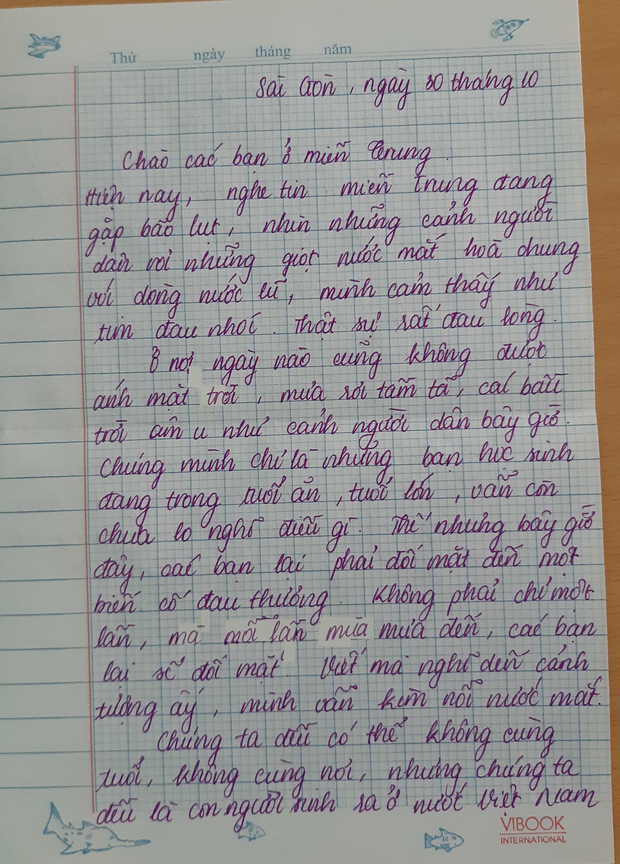 Thứ ngày tháng năm
Sài Gòn, ngày 20 tháng 10
Chào các bạn ở miền Trung.
Hiện nay, nghe tin miền trung đang
gặp bão lụt, nhìn những cảnh người
dân với những giọt nước mắt hoà chung
với dòng nước lũ, mình cảm thấy như
tim đau nhói. Thật sự rất đau lòng.
Ở nơi ngày nào cũng không được
ánh mặt trời, mưa rơi tầm tã, cái bầu
trời âm u như cảnh người dân bây giờ.
Chúng mình chỉ là những bạn học sinh
đang trong tuổi ăn, tuổi lớn, vẫn còn
chưa lo nghĩ điều gì. Thế nhưng bây giờ
đây, các bạn lại phải đối mặt đến một
biến cố đau thương. Không phải chỉ một
lần, mà mỗi lần mùa mưa đến, các bạn
lại sẽ đối mặt. Viết mà nghĩ đến cảnh
tượng ấy, mình vẫn kìm nổi nước mắt.
Chúng ta đều có thể không cùng
tuổi, không cùng nơi, nhưng chúng ta
đều là con người sinh ra ở nước Việt Nam
VIBOOK
INTERNATIONAL